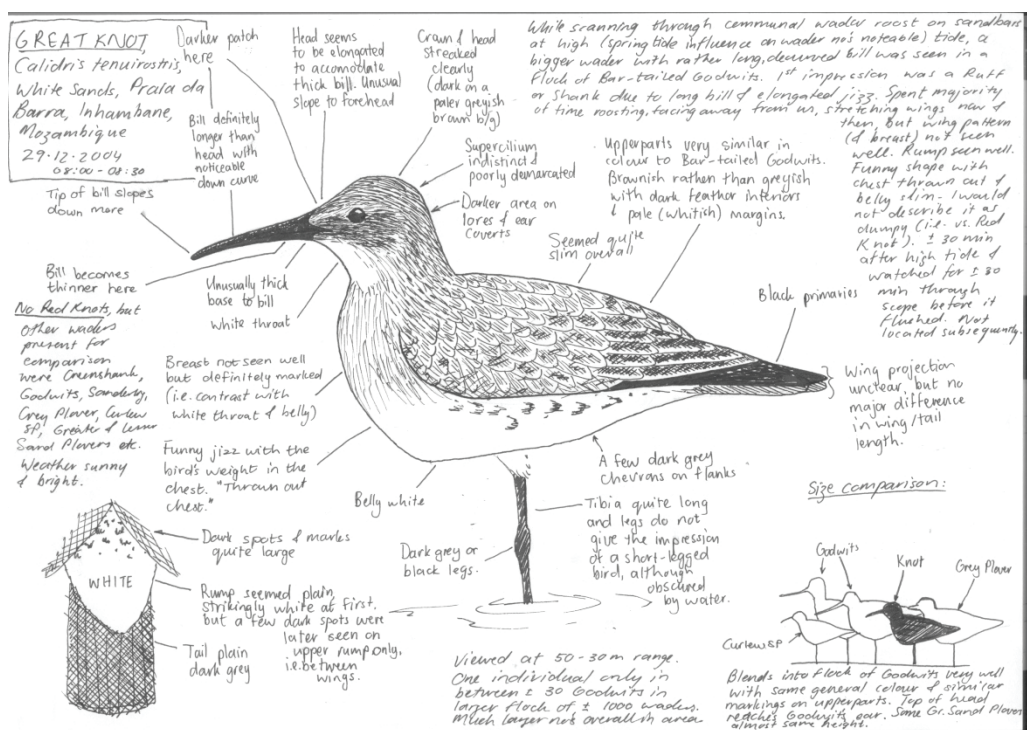 GREAT KNOT,
Calidris tenuirostris,
White Sands, Praia da
Barra, Inhambane,
Mozambique
29.12.2004
08:00 - 08:30
Darker patch
here
Head seems
to be elongated
to accomodate
thick bill. Unusual
slope to forehead
Crown & head
streaked
clearly
(dark on a
paler greyish
brown b/g)
While scanning through communal wader roost on sandbars
at high (spring tide influence on wader no's noteable) tide, a
bigger wader with rather long, decurved bill was seen in a
flock of Bar-tailed Godwits. 1st impression was a Ruff
or Shank due to long bill & elongated jizz. Spent majority
of time roosting, facing away from us, stretching wings now &
then, but wing pattern
(& breast) not seen
well. Rump seen well.
Funny shape with
chest thrown out &
belly slim - I would
not describe it as
dumpy (i.e. vs. Red
Knot). ± 30 min
after high tide &
watched for ± 30
min through
scope before it
flushed. Not
located subsequently.
Bill definitely
longer than
head with
noticeable
down curve
Tip of bill slopes
down more
Supercilium
indistinct &
poorly demarcated
Darker area on
lores & ear
coverts
Upperparts very similar in
colour to Bar-tailed Godwits.
Brownish rather than greyish
with dark feather interiors
& pale (whitish) margins.
Seemed quite
slim overall
Bill becomes
thinner here
Unusually thick
base to bill
White throat
Black primaries
No Red Knots, but
other waders
present for
comparison
were Greenshank,
Godwits, Sanderling,
Grey Plover, Curlew
SP, Greater & Lesser
Sand Plovers etc.
Weather sunny
& bright.
Breast not seen well
but definitely marked
(i.e. contrast with
white throat & belly)
Funny jizz with the
bird's weight in the
chest. "Thrown out
chest."
Belly white
Wing projection
unclear, but no
major difference
in wing/tail
length.
A few dark grey
chevrons on flanks
Tibia quite long
and legs do not
give the impression
of a short-legged
bird, although
obscured
by water.
Dark grey or
black legs.
Dark spots & marks
quite large
WHITE
Rump seemed plain,
strikingly white at first,
but a few dark spots were
later seen on
upper rump only,
i.e. between
wings.
Tail plain
dark grey
Viewed at 50-30m range.
One individual only in
between ± 30 Godwits in
larger flock of ± 1000 waders.
Much larger no's overall in area
Size comparison:
Godwits
Knot
Grey Plover
Curlew SP
Blends into flock of Godwits very well
with same general colour & similar
markings on upperparts. Top of head
reaches Godwits ear. Some Gr. Sand Plover
almost same height.